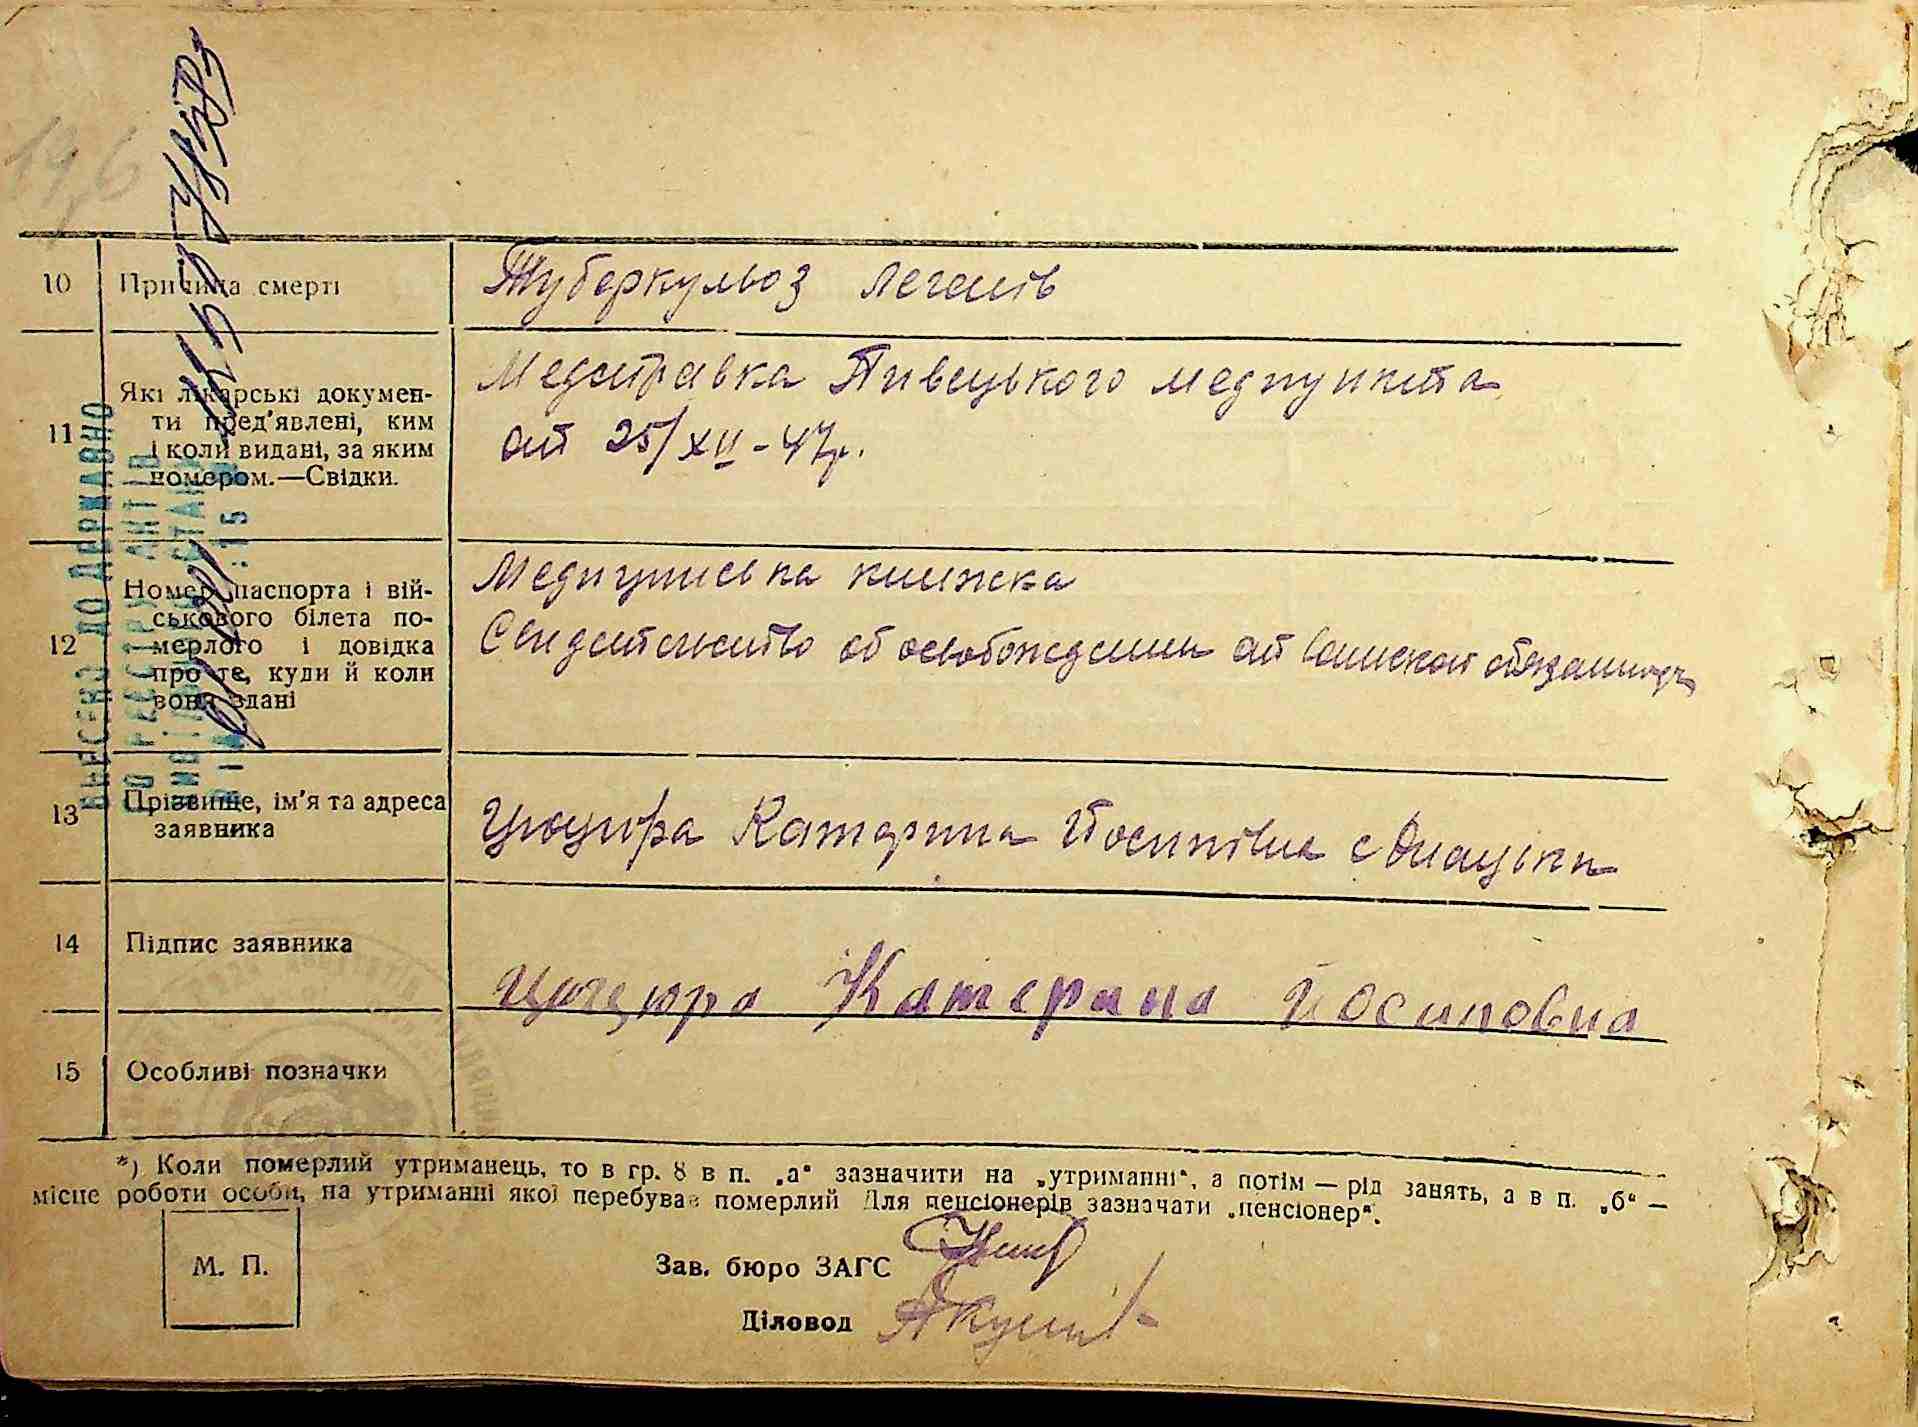 10 Причина смерті
Туберкульоз легенів
11 Які лікарські докумен-
ти пред'явлені, ким
і коли видані, за яким
номером.—Свідки.
Медсправка Пивецького медпункта
от 25/XII-47р.
12 Номер паспорта і вій-
ськового білета по-
мерлого і довідка
про те, куди й коли
вони здані
книжка
Свидетельство об освобождении от воинской
13 Прізвище, ім'я та адреса
заявника
Катерина Йосипівна с
14 Підпис заявника
Катерина Йосиповна
15 Особливі позначки
*) Коли померлий утриманець, то в гр. 8 в п. „а“ зазначити на „утриманні“, а потім — рід занять, а в п. „б“ —
місце роботи особи, на утриманні якої перебуває померлий Для пенсіонерів зазначати „пенсіонер“.
М. П.
Зав. бюро ЗАГС
Діловод
ВНЕСЕНО ДО ДЕРЖАВНО
ГО РЕЄСТРУ АКТІВ